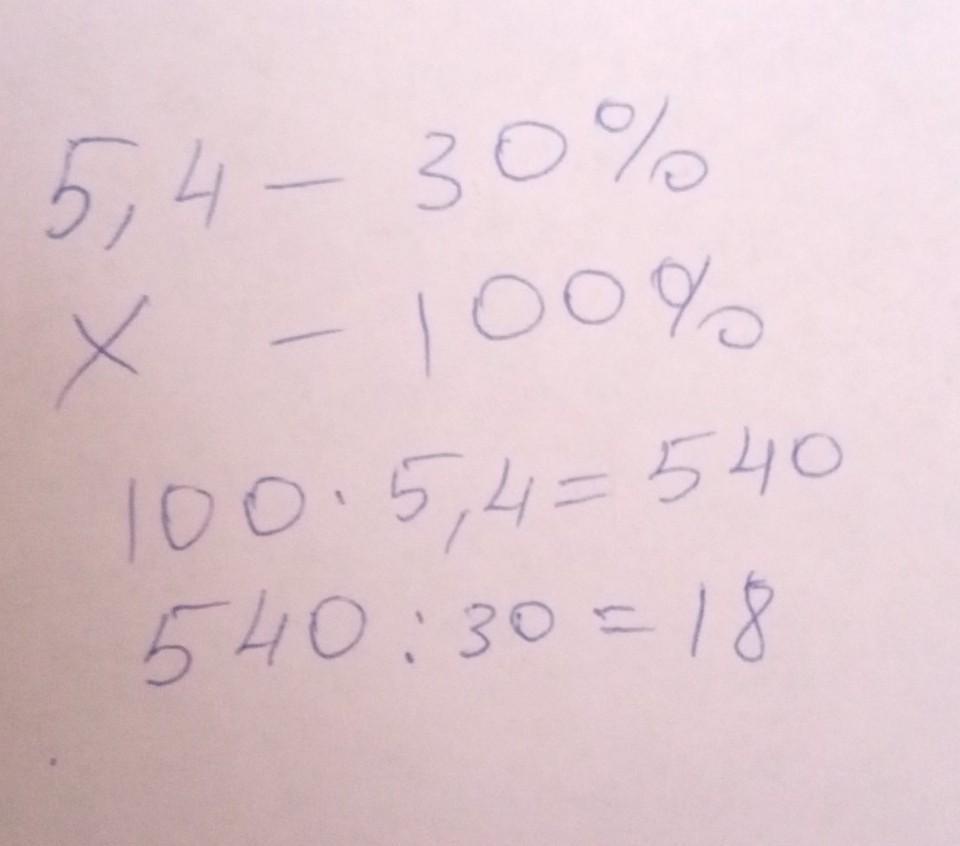 5,4 – 30%
x – 100%
100 · 5,4 = 540
540 : 30 = 18